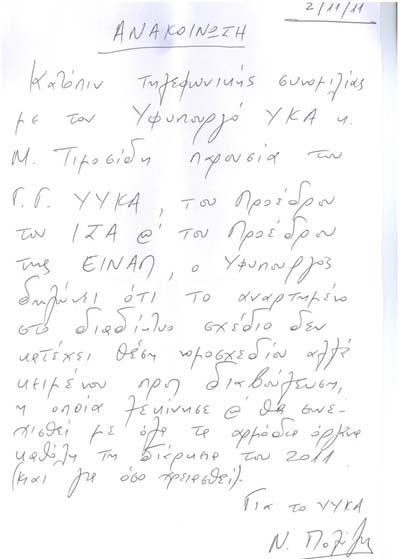 2/11/11
ΑΝΑΚΟΙΝΩΣΗ
Κατόπιν τηλεφωνικής συνομιλίας
με τον Υφυπουργό ΥΚΑ κ.
Μ. Τιμοσίδη παρουσία του
Γ.Γ. ΥΥΚΑ, του Προέδρου
του ΙΣΑ @ του Προέδρου
της ΕΙΝΑΠ, ο Υφυπουργός
δηλώνει ότι το αναρτημένο
στο διαδίκτυο σχέδιο δεν
κατέχει θέση νομοσχεδίου αλλά
κειμένου προς διαβούλευση,
η οποία ξεκίνησε @ θα συνε-
χισθεί με όλα τα αρμόδια όργανα
καθόλη τη διάρκεια του 2011
(και για όσο χρειασθεί).
Για το ΥΥΚΑ
Ν. Πολύζος